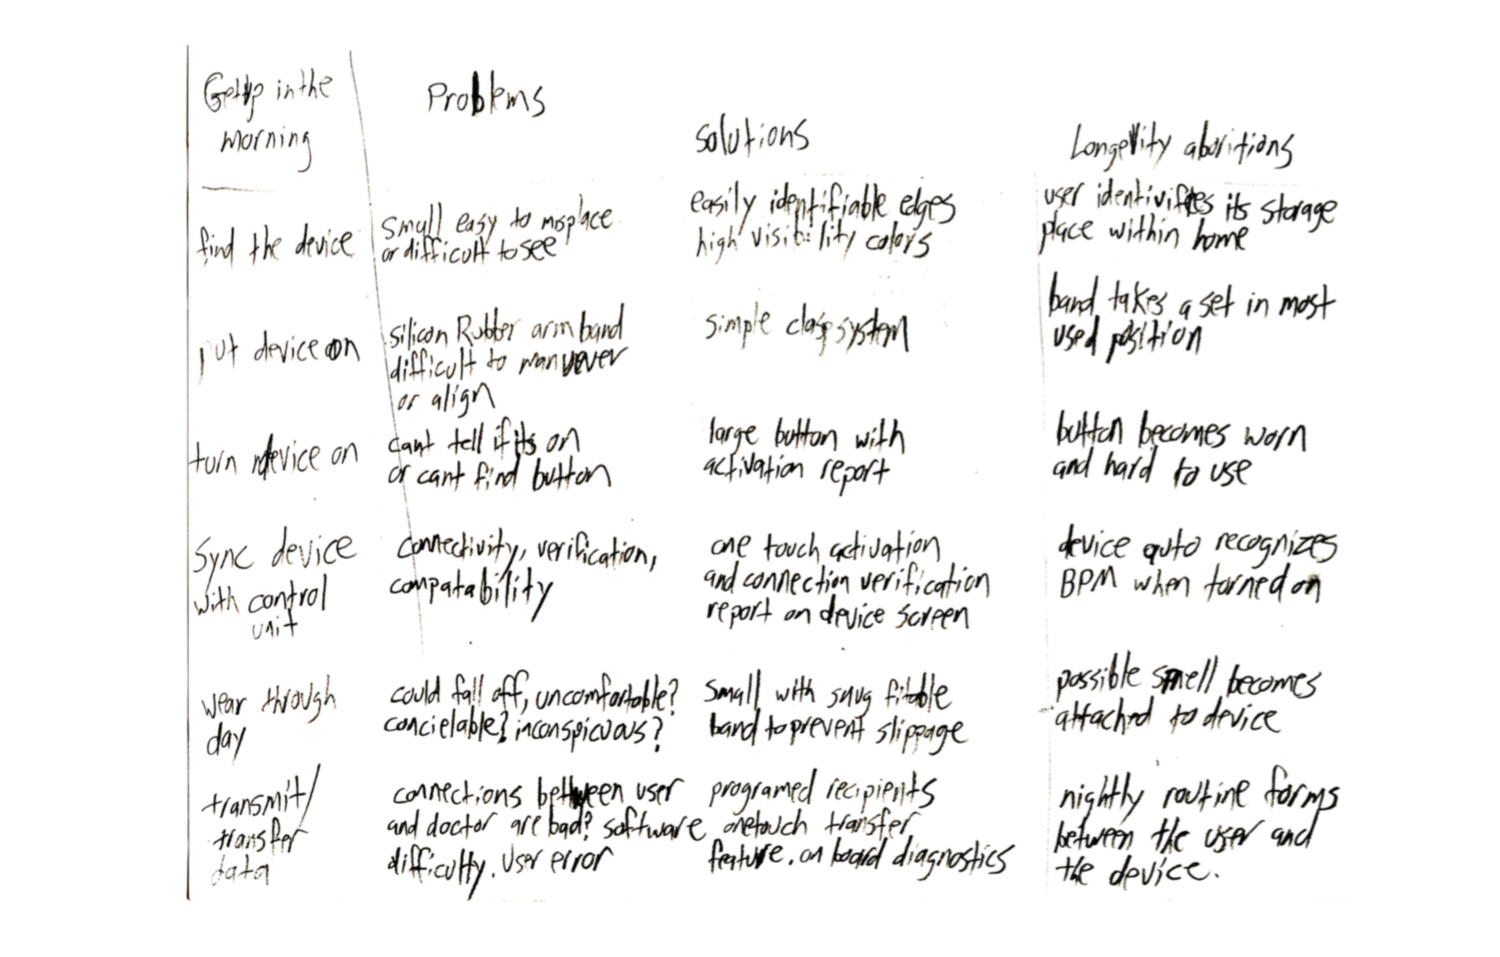 Get up in the
morning
Problems
solutions
Longevity aboritions
find the device
small easy to misplace
or difficult to see
easily identifiable edges
high visibility colors
user identivifies its storage
place within home
put device on
silicon Rubber arm band
difficult to manuever
or align
simple clasp system
band takes a set in most
used position
turn device on
cant tell if its on
or cant find button
large button with
activation report
button becomes worn
and hard to use
Sync device
with control
unit
connectivity, verification,
compatability
one touch activation
and connection verification
report on device screen
device auto recognizes
BPM when turned on
wear through
day
could fall off, uncomfortable?
concielable? inconspicuous?
small with snug fitable
band to prevent slippage
possible smell becomes
attached to device
transmit/
transfer
data
connections between user
and doctor are bad? software
difficulty. user error
programed recipients
onetouch transfer
feature. on board diagnostics
nightly routine forms
between the user and
the device.